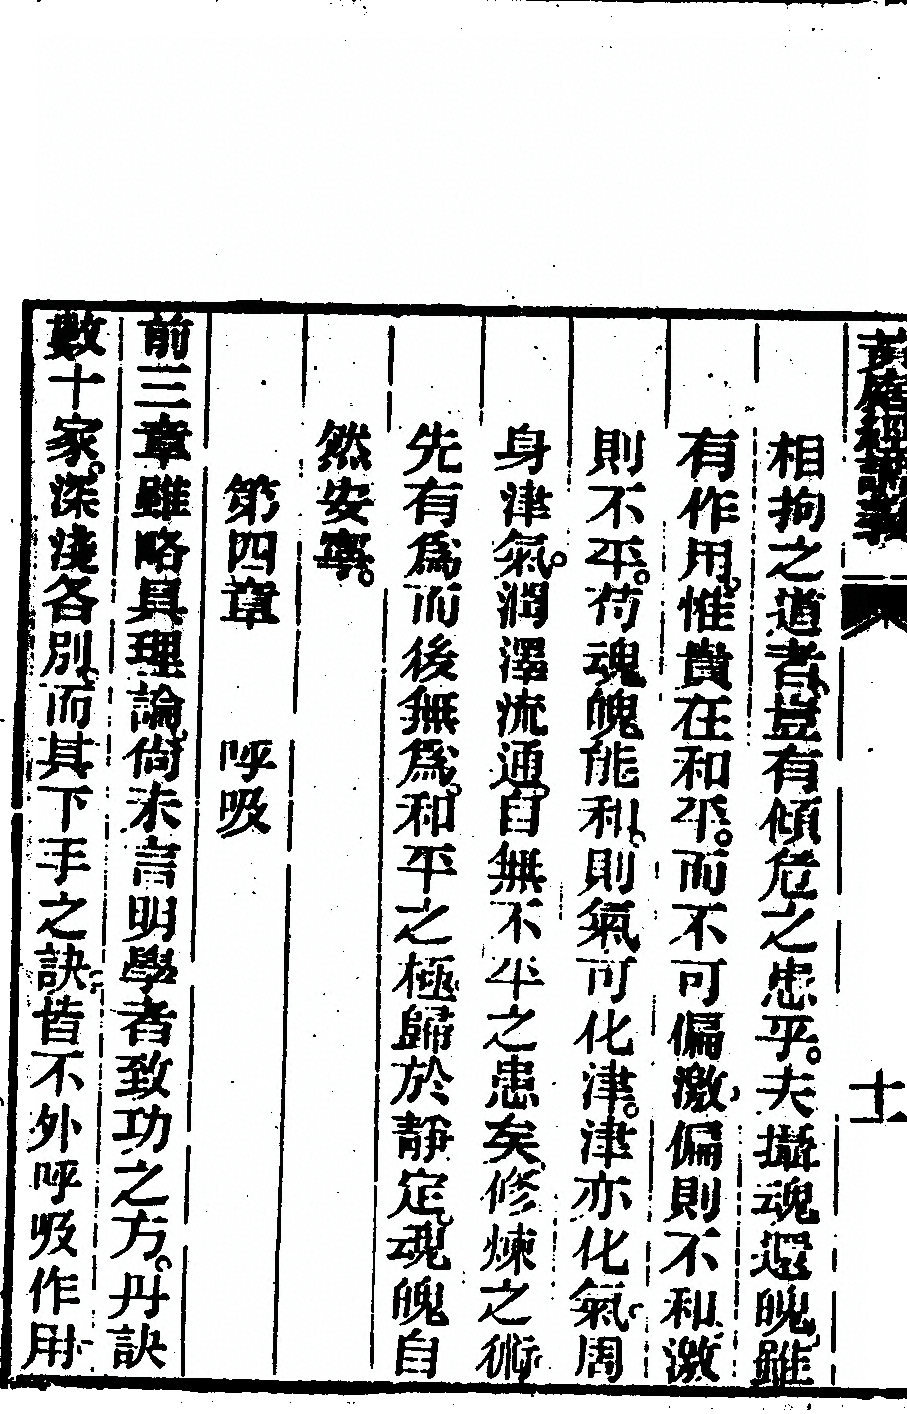 黃庭經講義
十一
相拘之道者、豈有傾危之患乎。夫攝魂還魄、雖
有作用、惟貴在和平。而不可偏激、偏則不和、激
則不平。苟魂魄能和、則氣可化津。津亦化氣。周
身津氣。潤澤流通。自無不平之患矣、修煉之術、
先有爲而後無爲、和平之極、歸於靜定、魂魄自
然安寧。
第四章　呼吸
前三章雖略具理論、尙未言明學者致功之方。丹訣
數十家。深淺各別、而其下手之訣、皆不外呼吸作用、